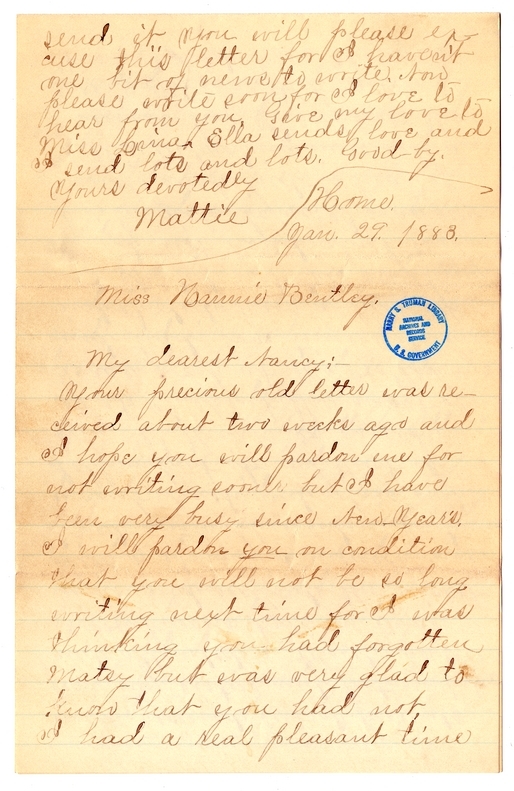 send it You will please ex-
cuse this letter for I haven't
one bit of news to write. Now
please write soon for I love to
hear from you. Give my love to
Miss Ella sends love and
I send lots and lots. Good-by.
Yours devotedly
Mattie
Home.
Jan. 29. 1883.
Miss Nannie Bentley.
HARRY S. TRUMAN LIBRARY
NATIONAL
ARCHIVES AND
RECORDS
SERVICE
U. S. GOVERNMENT
My dearest Nancy;-
Your precious old letter was re-
ceived about two weeks ago and
I hope you will pardon me for
not writing sooner but I have
been very busy since New-Year's.
I will pardon you on condition
that you will not be so long
writing next time for I was
thinking you had forgotten
Matsy but was very glad to
know that you had not.
I had a real pleasant time